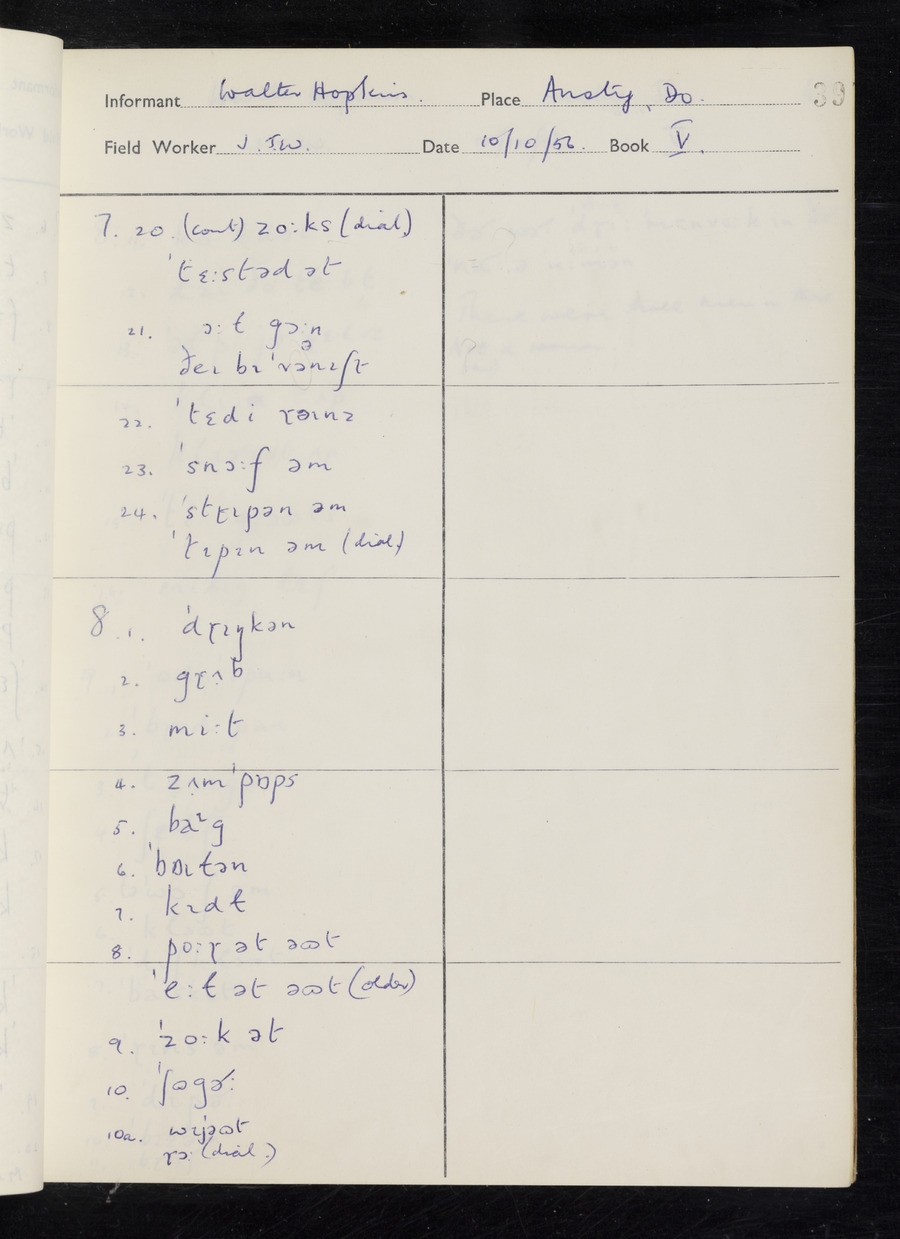 Informant Walter Hopkins. Place Ansty, Do. 39
Field Worker J.J.W. Date 10/10/56. Book V.
7. 20. (cont) zo:ks (dial)
ˈtɛ:stəd ət
21. ɔ:t gɔ:n
ðeɪ bɪˈvənɪʃt
22. ˈtɛdi ɽəɪnz
23. ˈsnɔ:f əm
24. ˈstɽɪpən əm
ˈtɪpɪn əm (dial)
8. 1. ˈdɽɪŋkən
2. gɽʌb
3. mi:t
4. zʌmˈpɒps
5. baᶻg
6. ˈbɒɪtən
7. kɪdt
8. po:ɽ ət əɷt
ˈe:t ət əɷt (older)
9. ˈzo:k ət
10. ˈʃɷgə˞:
10a. wɪjəɷt
ɽɔ: (dial.)